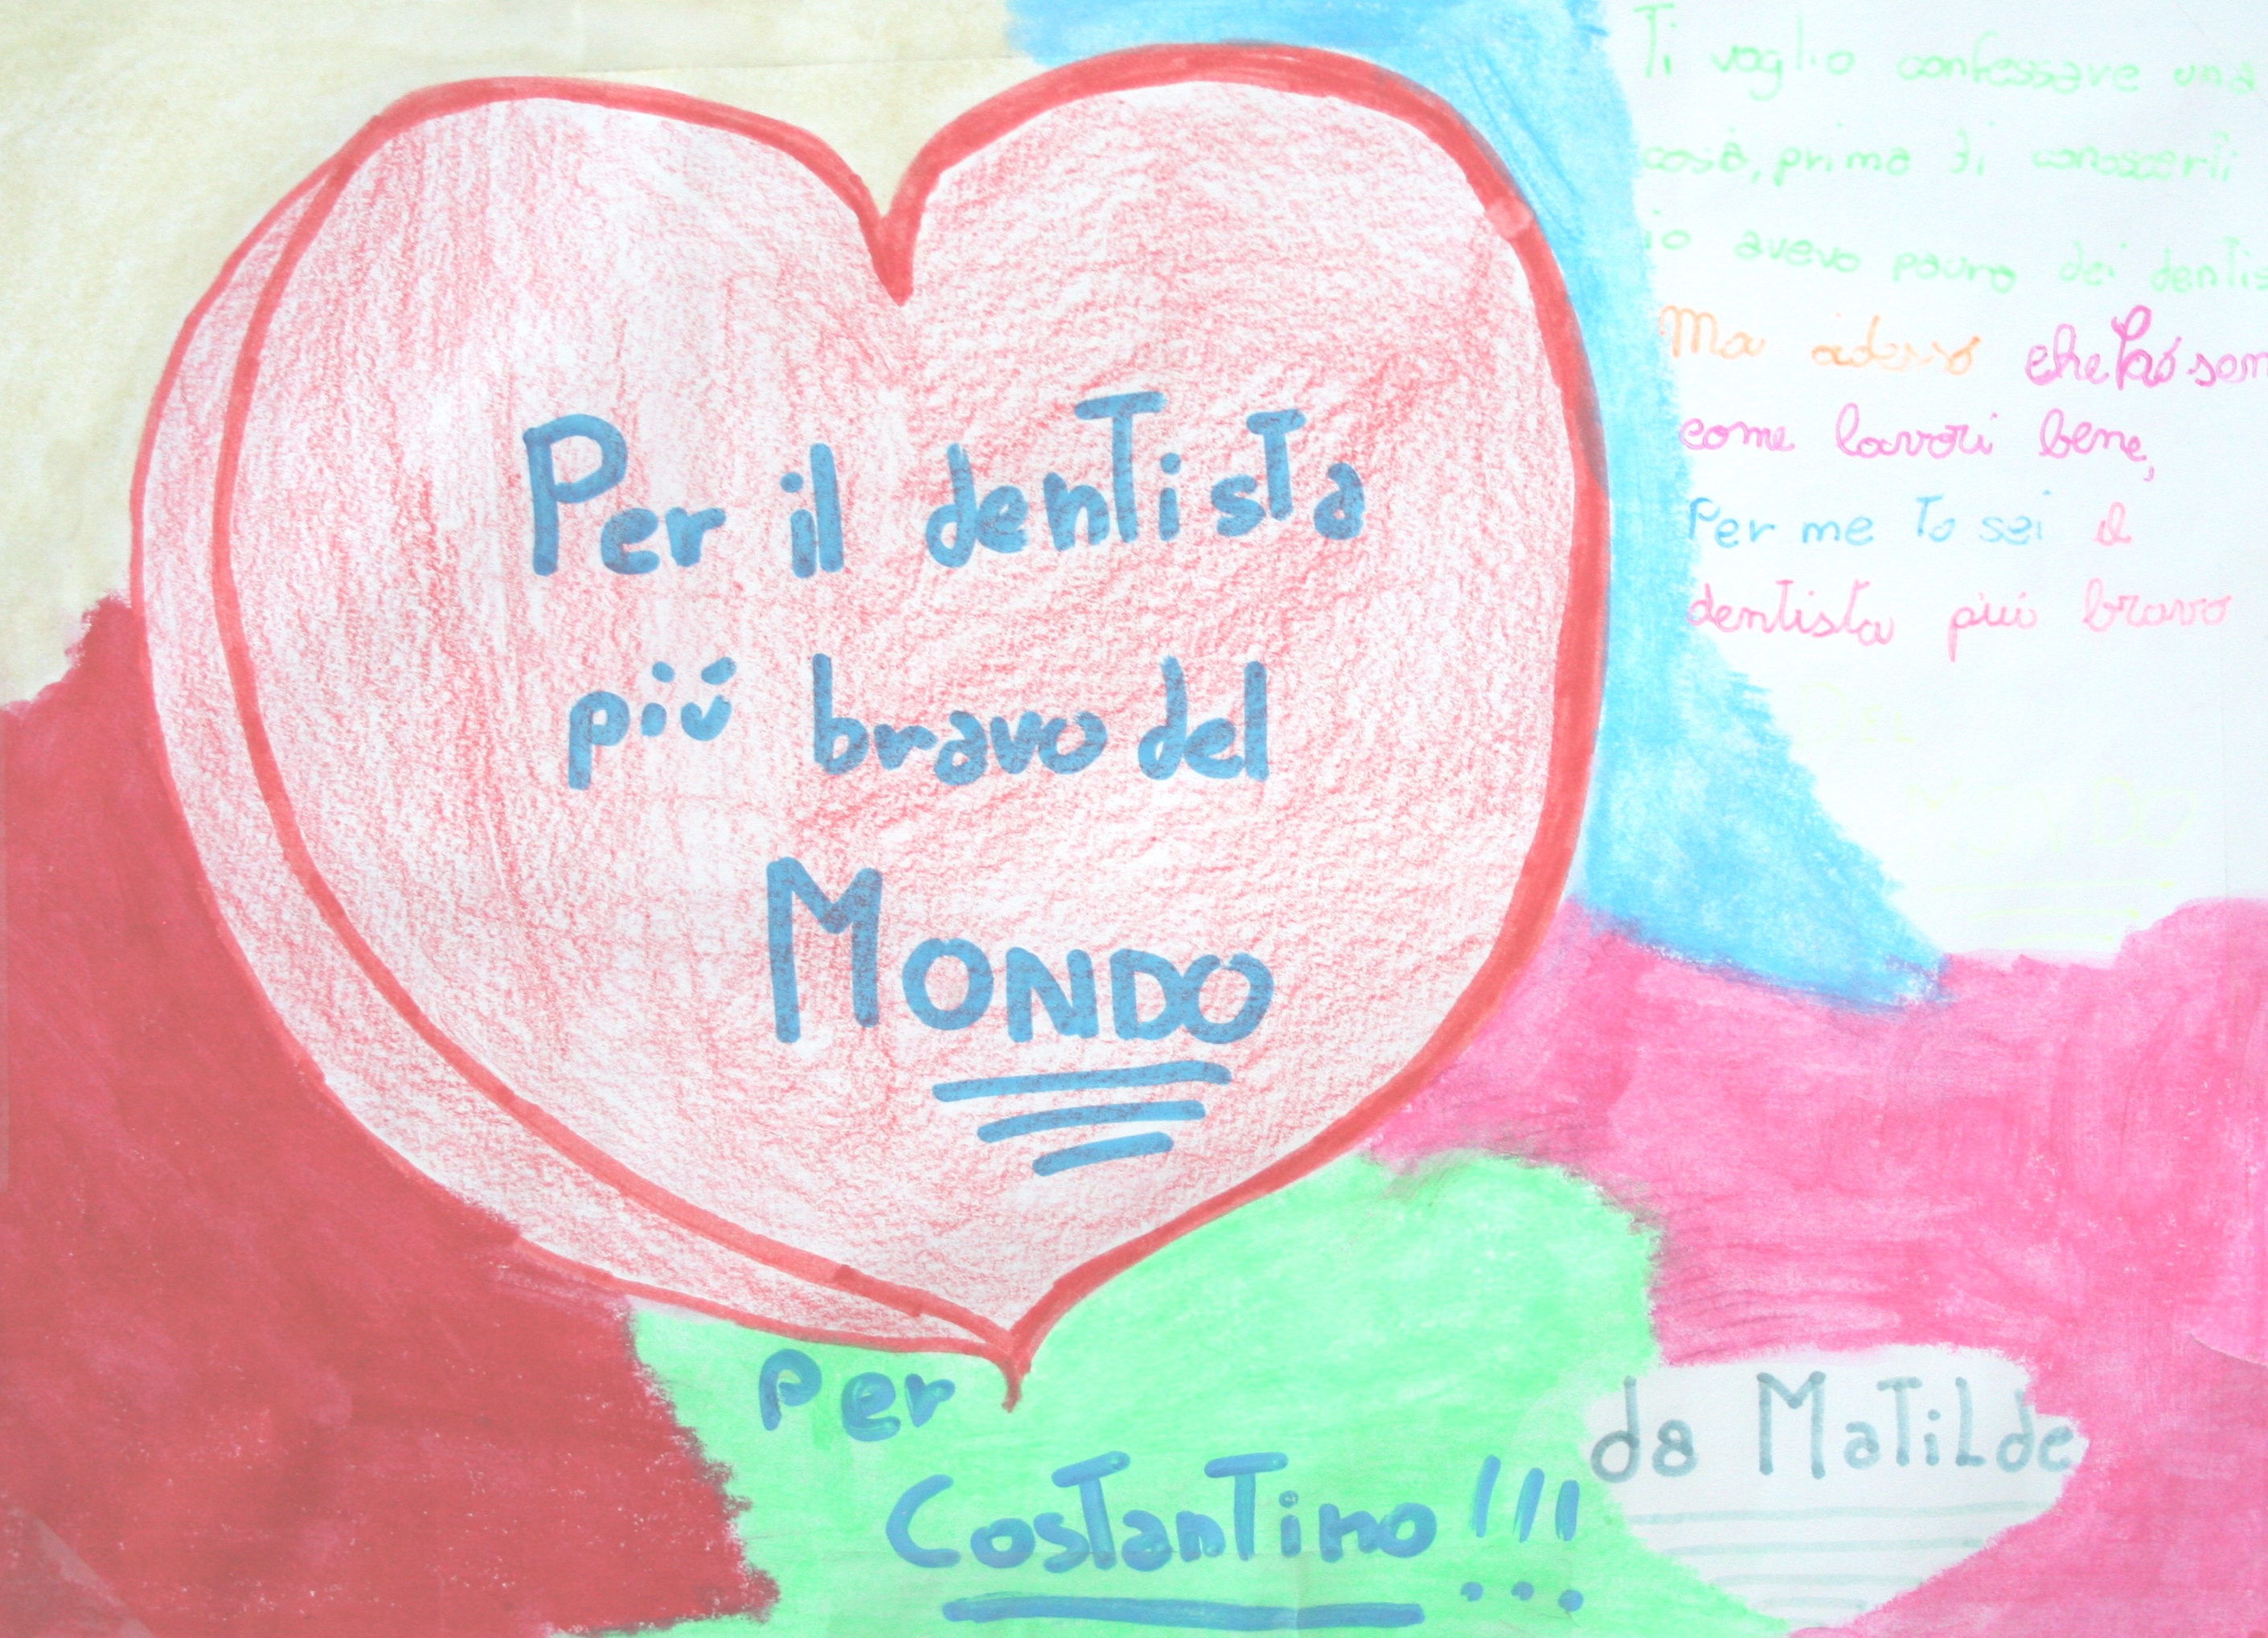 Per il dentista
più bravo del
MONDO
Per
Costantino!!!
da MaTiLde
Ti voglio confessare una
cosa, prima di conoscerti
io avevo paura dei dentis
Ma adesso che
come lavori bene,
Per me tu sei il
dentista più bravo
DEL
MONDO